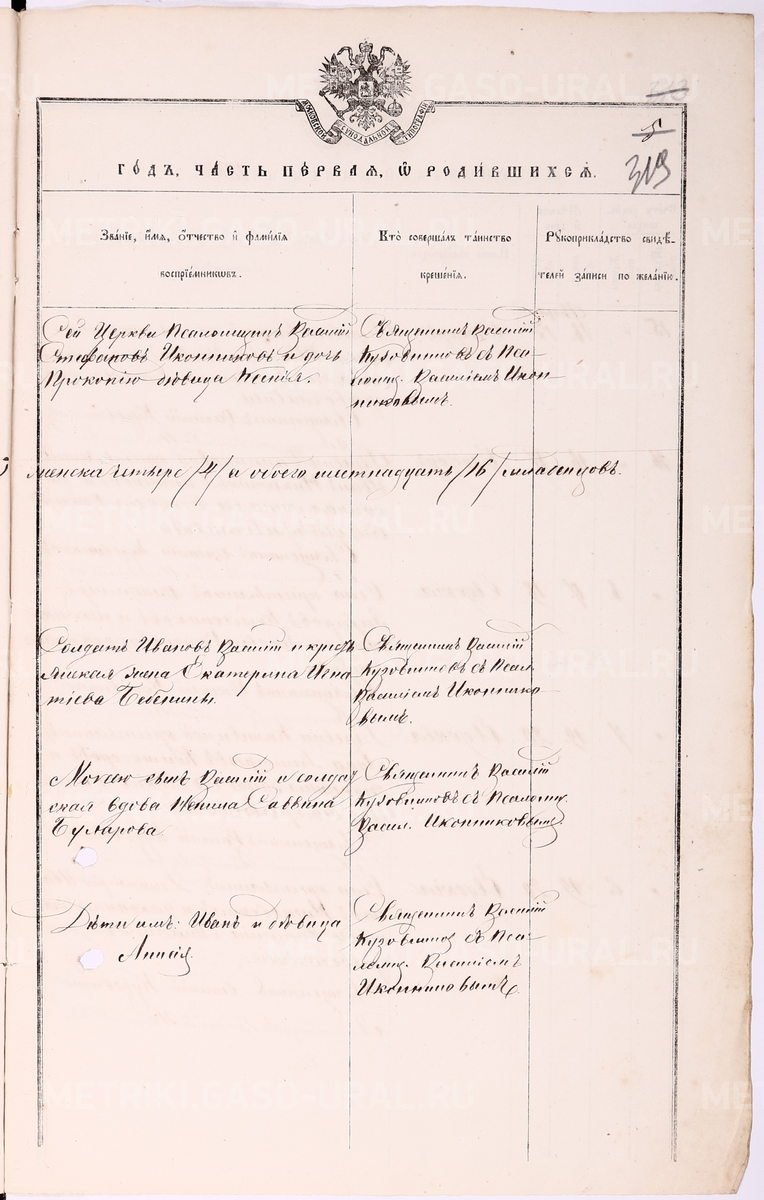 МОСКОВСКОЙ СУНОДАЛЬНОЙ ТИПОГРАФІИ
5
319
ГОДЪ, ЧАСТЬ ПЕРВАЯ, Ѿ РОДИВШИХСЯ.
Званіе, имя, отчество и фамилія
воспріемниковъ.
Кто совершалъ таинство
крещенія.
Рукоприкладство свидѣ-
телей записи по желанію.
Сей Церкви Псаломщикъ Василій
Стефановъ Иконниковъ и дочь
Прокопію дѣвица Ксенія.
Священникъ Василій
Кузовниковъ съ Пса-
ломщ. Василіемъ Икон-
никовымъ.
женска четыре /4/ а обоего шестнадцать /16/ младенцовъ.
Солдатъ Ивановъ Василій и кресть
янская жена Екатерина Игна
тіева Бебенины.
Священникъ Василій
Кузовниковъ съ Псал.
Василіемъ Иконнико-
вымъ.
сынъ Василій и солдат
ская вдова Саввина
Священникъ Василій
Кузовниковъ съ Псаломщ.
Васил. Иконниковымъ.
Дѣти имъ: Иванъ и дѣвица
Анисія.
Священникъ Василій
Кузовников съ Пса-
ломщ. Василіемъ
Иконниковымъ.
METRIKI.GASO-URAL.RU